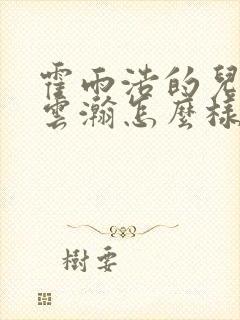 霍雨浩的兒
雲瀚怎麼樣
樹要